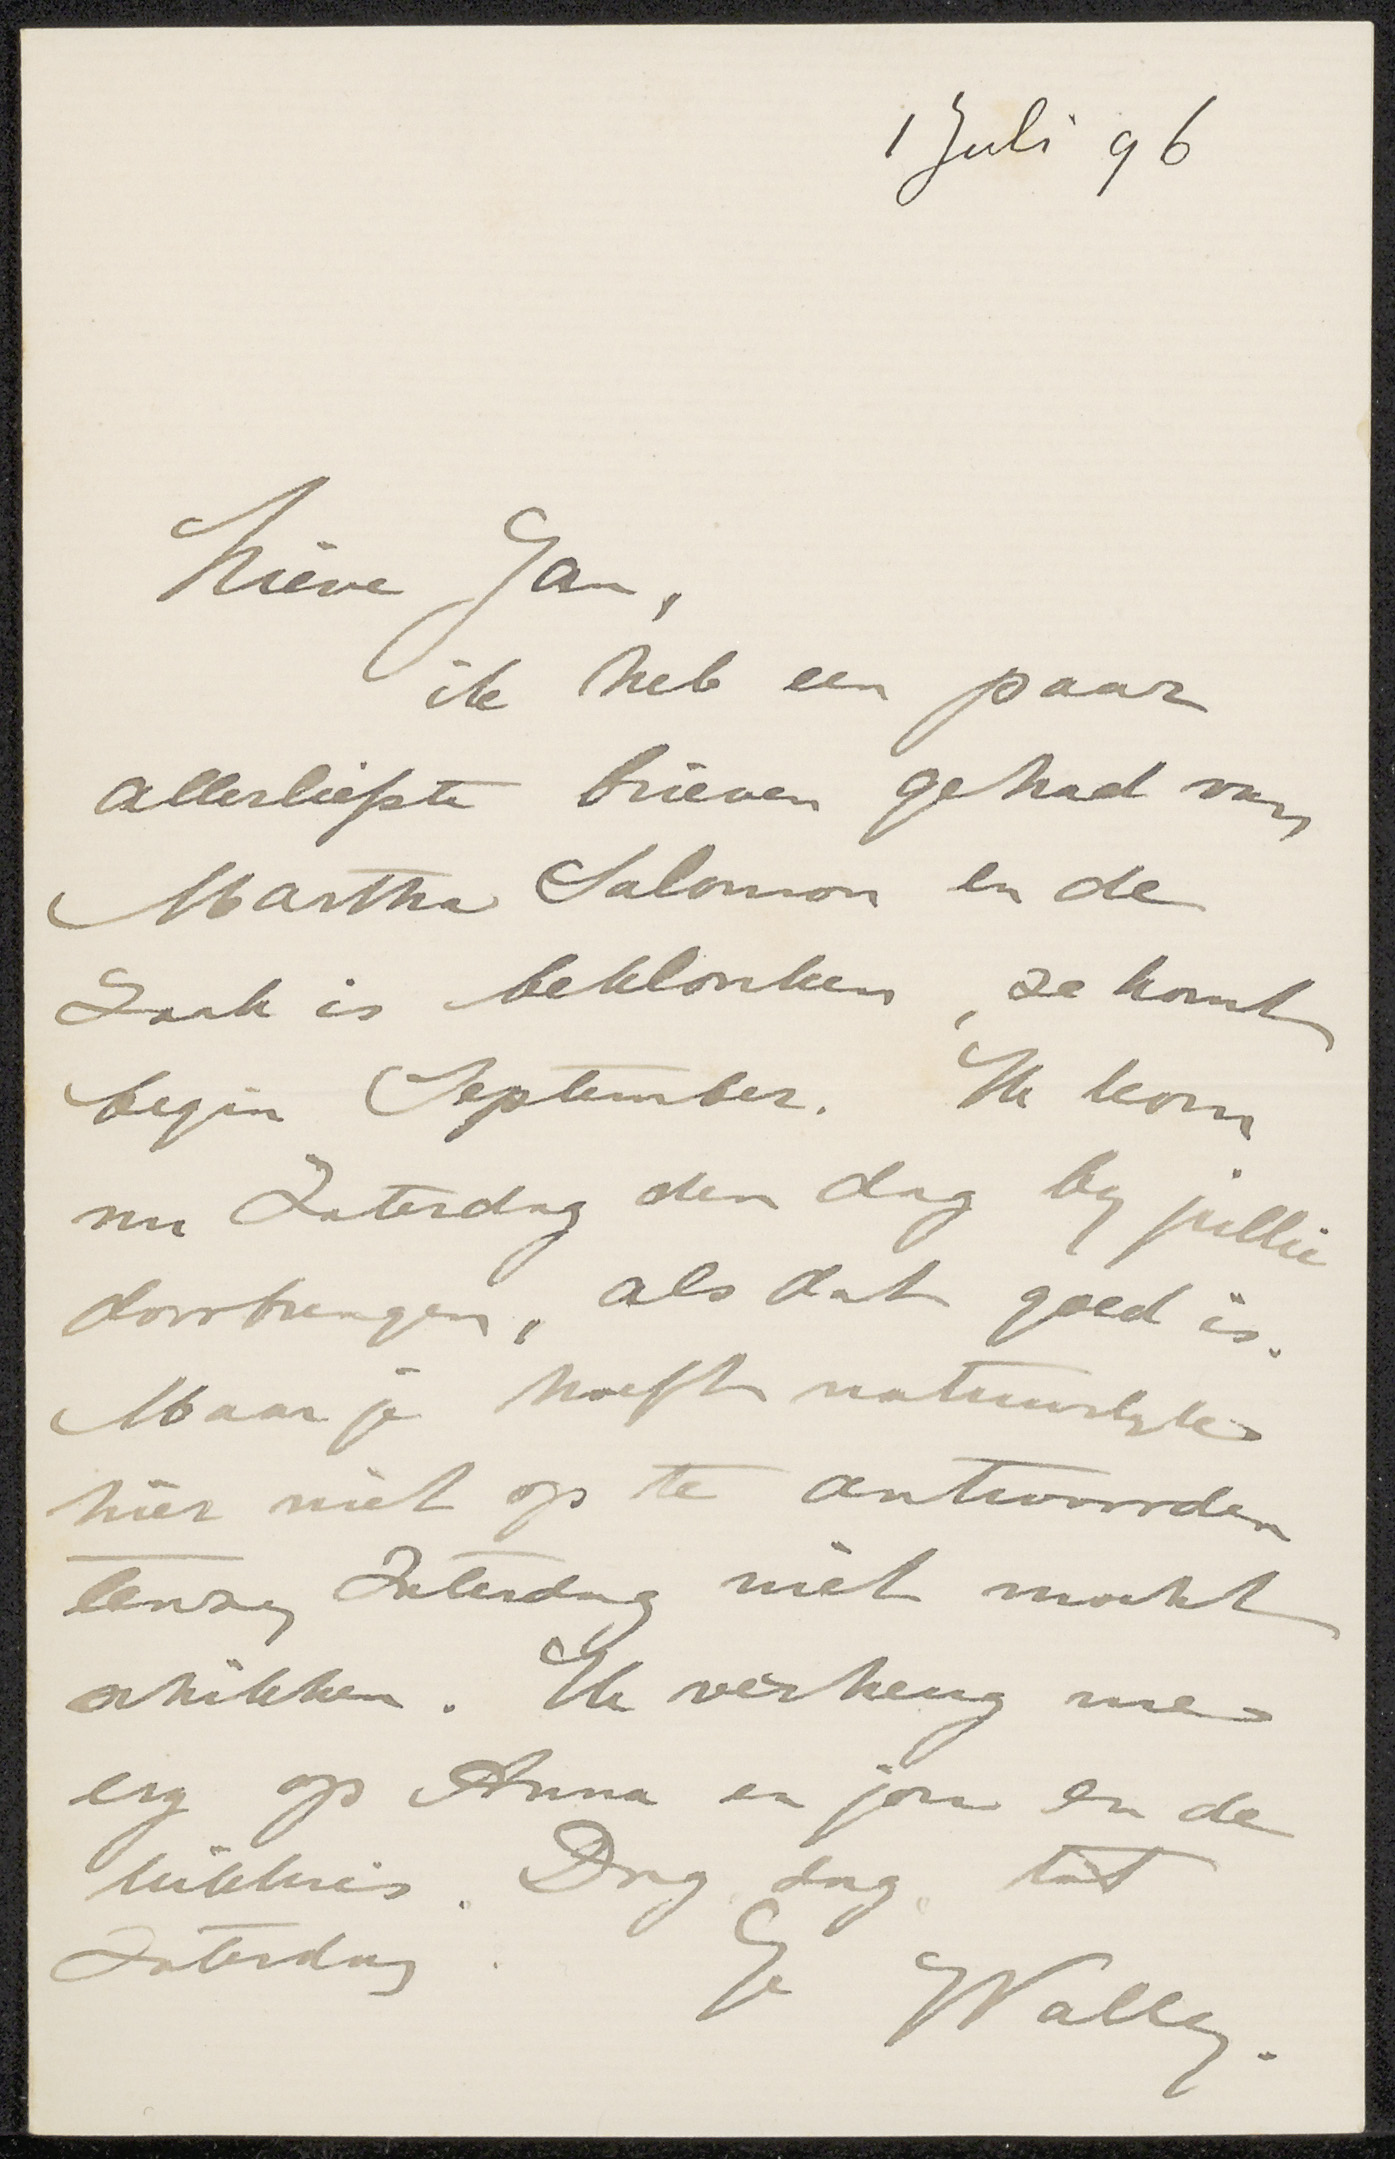 1 Juli 96
Lieve Jan,
ik heb een paar
allerliefste brieven gehad van
Martha Salomon en de
Zaak is beklonken, ze komt
begin September. Ik kom
nu Zaterdag den dag by jullie
doorbrengen, als dat goed is.
Maar je hoeft natuurlyk
hier niet op te antwoorden
tenzy Zaterdag niet mocht
schikken. Ik verheug me
erg op Anna en jou en de
kikkies. Dag dag tot
Zaterdag. Je Wally.